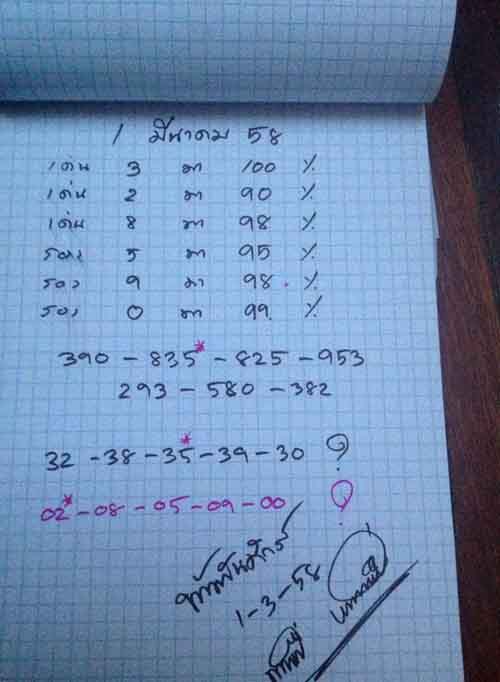 1 มีนาคม 58
เด่น 3 มา 100 %
เด่น 2 มา 90 %
เด่น 8 มา 98 %
รอง 5 มา 95 %
รอง 9 มา 98 %
รอง 0 มา 99 %
390 - 835* - 825 - 953
293 - 580 - 382
32 - 38 - 35* - 39 - 30 ?
02* - 08 - 05 - 09 - 00 ?
1-3-58